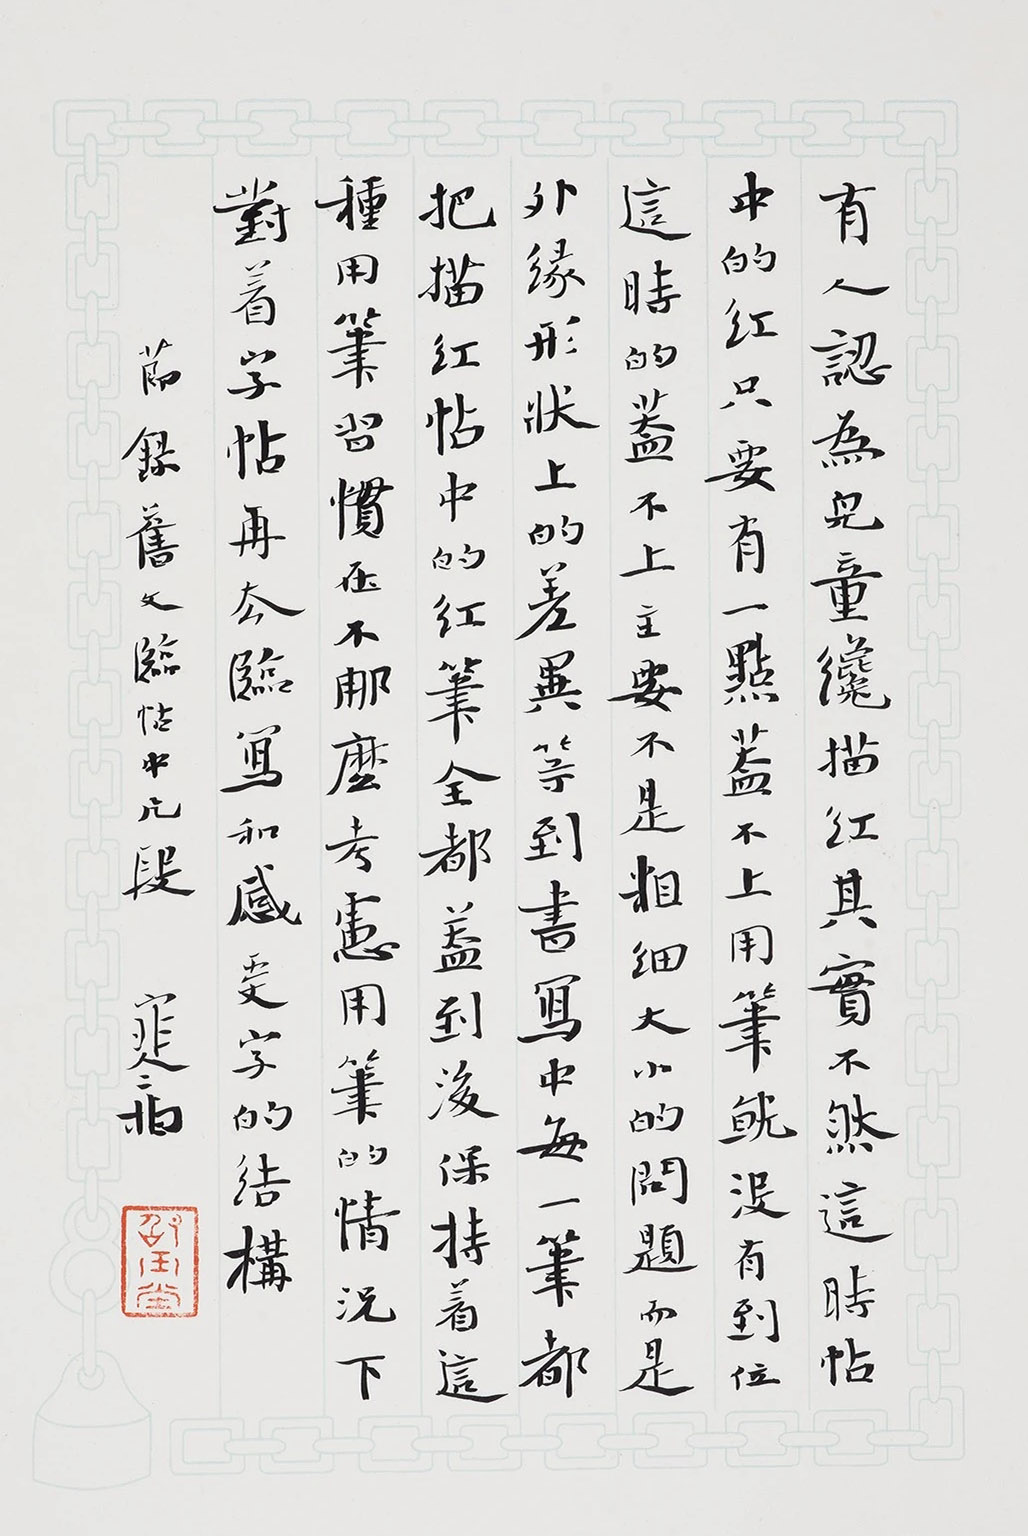 有人認為兒童纔描紅其實不然這時帖
中的紅只要有一點蓋不上用筆就沒有到位
這時的蓋不上主要不是粗細大小的問題而是
外緣形狀上的差異等到書寫中每一筆都
把描紅帖中的紅筆全都蓋到後保持着這
種用筆習慣在不那麼考慮用筆的情況下
對着字帖再去臨寫和感受字的結構
節錄舊文臨帖中片段